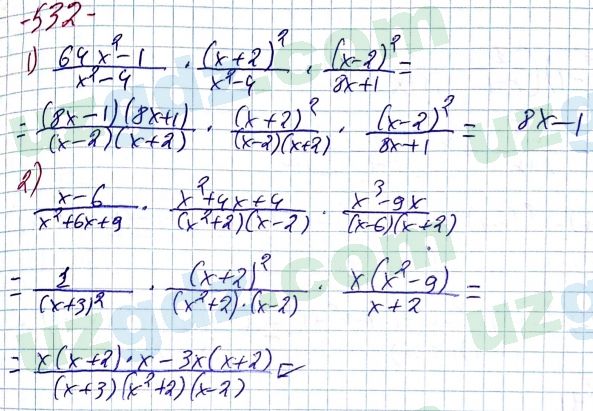 -532-
1) (64x²-1)/(x²-4) · (x+2)²/(x²-4) · (x-2)²/(8x+1) =
= (8x-1)(8x+1)/((x-2)(x+2)) · (x+2)²/((x-2)(x+2)) · (x-2)²/(8x+1) = 8x-1
2) (x-6)/(x²+6x+9) · (x²+4x+4)/((x²+2)(x-2)) · (x³-9x)/((x-6)(x+2))
= 1/(x+3)² · (x+2)²/((x²+2)·(x-2)) · x(x²-9)/(x+2) =
= (x(x+2)·x-3x(x+2))/((x+3)(x²+2)(x-2))
uzgdz.com